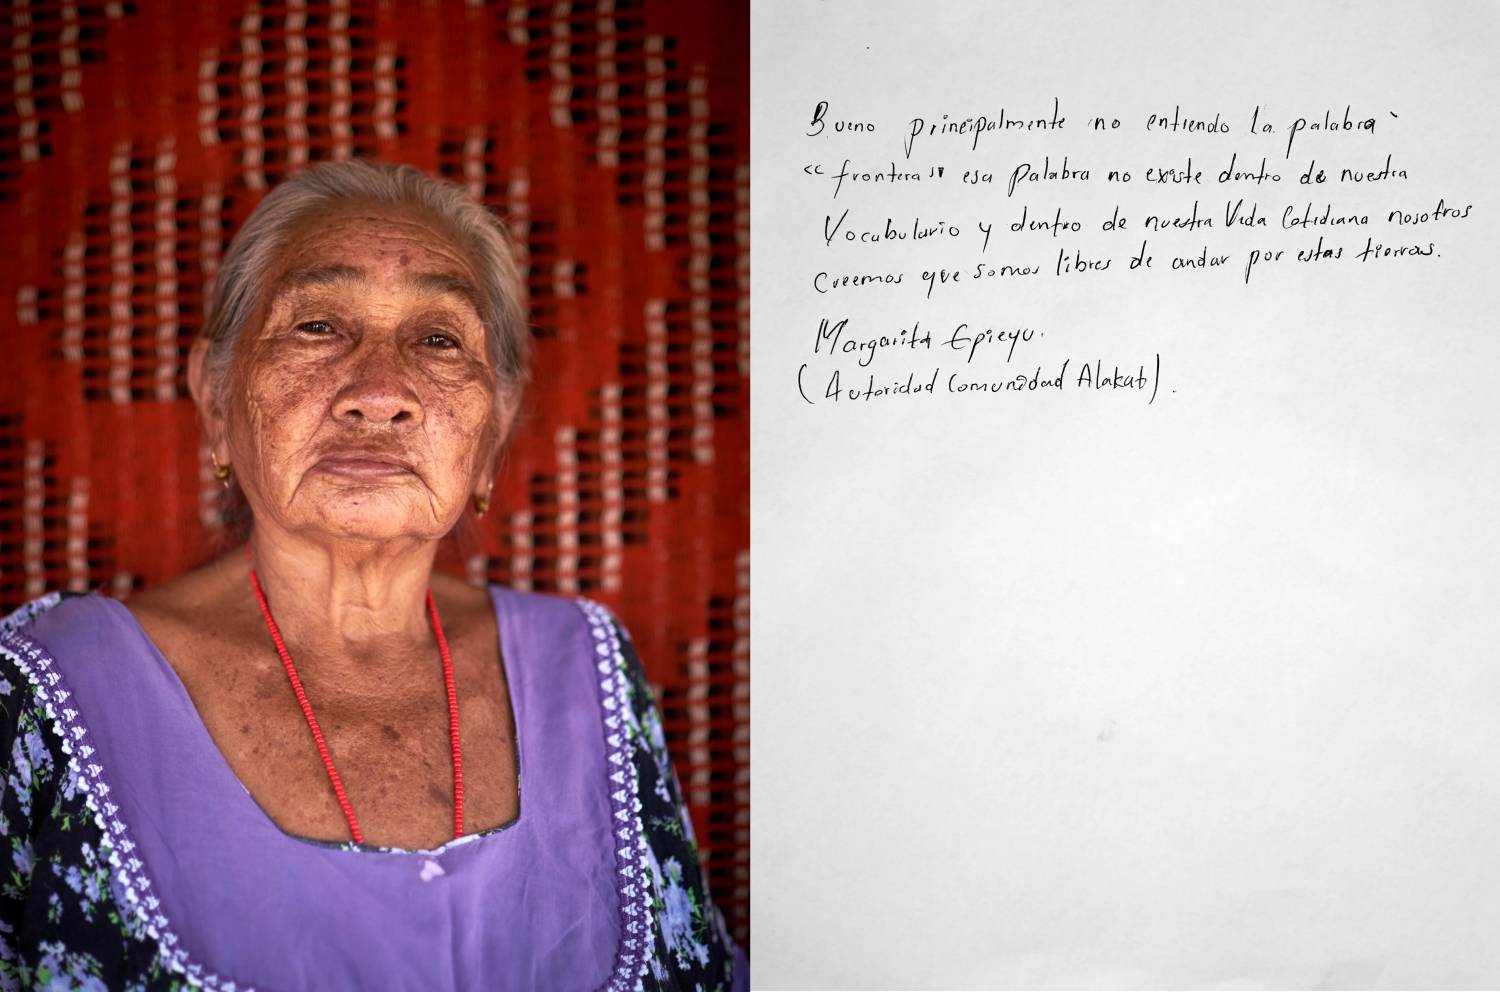 Bueno principalmente no entiendo la palabra
"frontera" esa palabra no existe dentro de nuestra
Vocabulario y dentro de nuestra Vida Cotidiana nosotros
Creemos que somos libres de andar por estas tierras.
Margarita Epieyu.
(Autoridad Comunidad Alakat).